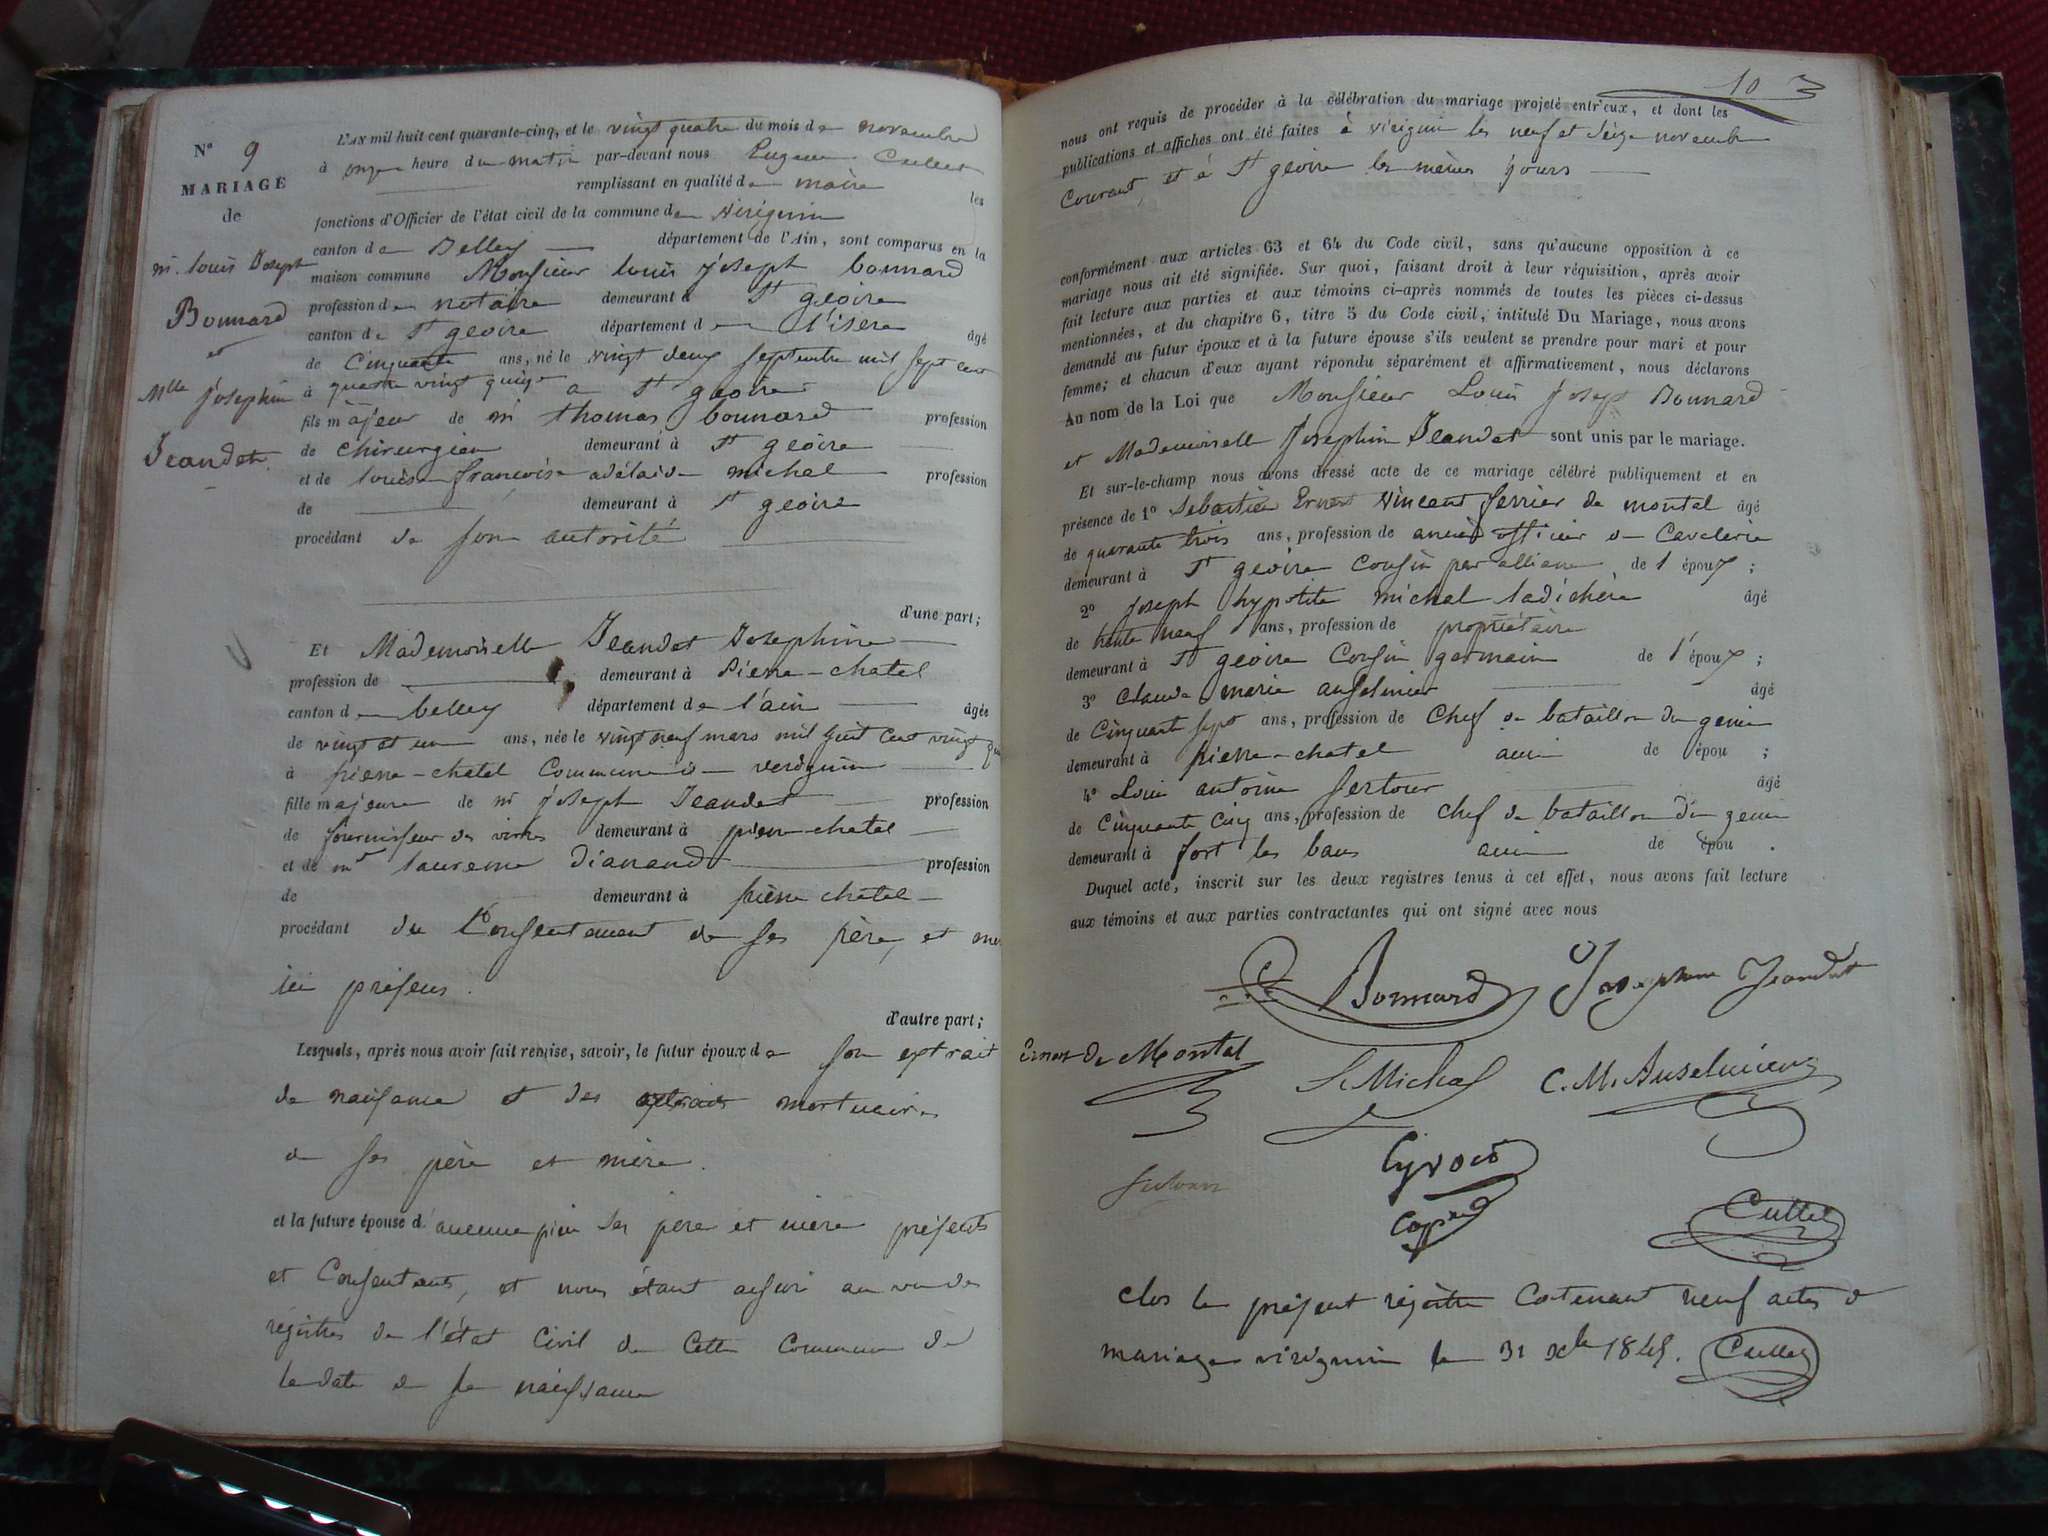 N° 9
MARIAGE
de
m. louis Joseph
Bonnard
et
Mlle Joséphine
Jeandet
L'AN mil huit cent quarante-cinq, et le vingt quatre du mois de novembre
à onze heure du matin par-devant nous Eugene Cullet
remplissant en qualité de maire les
fonctions d'Officier de l'état civil de la commune de virignin
canton de Belley département de l'Ain, sont comparus en la
maison commune Monsieur louis joseph bonnard
profession de notaire demeurant à St geoire
canton de St geoire département de l'isère âgé
de Cinquante ans, né le vingt deux septembre mil sept cent
à quatre vingt quinze a St geoire
fils majeur de mr thomas bonnard profession
de chirurgien demeurant à St geoire
et de louise françoise adélaide michal profession
de demeurant à St geoire
procédant de son autorité
d'une part;
Et Mademoiselle Jeandet Josephine
profession de demeurant à Pierre-chatel
canton de belley département de l'ain âgée
de vingt et un ans, née le vingt neuf mars mil huit cent vingt
à pierre-chatel commune de virignin
fille majeure de mr joseph Jeandet profession
de fournisseur des vivres demeurant à pierre-chatel
et de me laurence Dianand profession
de demeurant à pierre chatel
procédant du Consentement de ses père et mère
ici présens.
d'autre part;
Lesquels, après nous avoir fait remise, savoir, le futur époux de son extrait
de naissance et des extraits mortuaires
de ses père et mère.
et la future épouse d'aucune pièce ses père et mère présents
et Consentants, et nous étant assuré au vu des
régistres de l'état Civil de Cette Commune de
la date de sa naissance
10
nous ont requis de procéder à la célébration du mariage projeté entr'eux, et dont les
publications et affiches ont été faites à virignin les neuf et seize novembre
Courant, et à St geoire les mêmes jours
conformément aux articles 63 et 64 du Code civil, sans qu'aucune opposition à ce
mariage nous ait été signifiée. Sur quoi, faisant droit à leur réquisition, après avoir
fait lecture aux parties et aux témoins ci-après nommés de toutes les pièces ci-dessus
mentionnées, et du chapitre 6, titre 5 du Code civil, intitulé Du Mariage, nous avons
demandé au futur époux et à la future épouse s'ils veulent se prendre pour mari et pour
femme; et chacun d'eux ayant répondu séparément et affirmativement, nous déclarons
Au nom de la Loi que Monsieur Louis Joseph Bonnard
et Mademoiselle Josephine Jeandet sont unis par le mariage.
Et sur-le-champ nous avons dressé acte de ce mariage célébré publiquement et en
présence de 1° Sébastien Ernest Vincent ferrier de montal âgé
de quarante trois ans, profession de ancien officier de Cavalerie
demeurant à St geoire Cousin par alliance de l'époux;
2° Joseph hypolite michal ladichère âgé
de trente neuf ans, profession de propriétaire
demeurant à St geoire Cousin germain de l'époux;
3° Claude marie anselmier âgé
de Cinquante sept ans, profession de Chef de bataillon du genie
demeurant à pierre-chatel ami de épou ;
4° Louis antoine sertour âgé
de Cinquante Cinq ans, profession de chef de bataillon du genie
demeurant à fort les bans ami de épou .
Duquel acte, inscrit sur les deux registres tenus à cet effet, nous avons fait lecture
aux témoins et aux parties contractantes qui ont signé avec nous
Bonnard Josephine Jeandet
Ernest de Montal
L Michal
C. M. Anselmier
Cullet
clos le présent régistre Contenant neuf actes de
mariage virignin le 31 Xbre 1845. Cullet